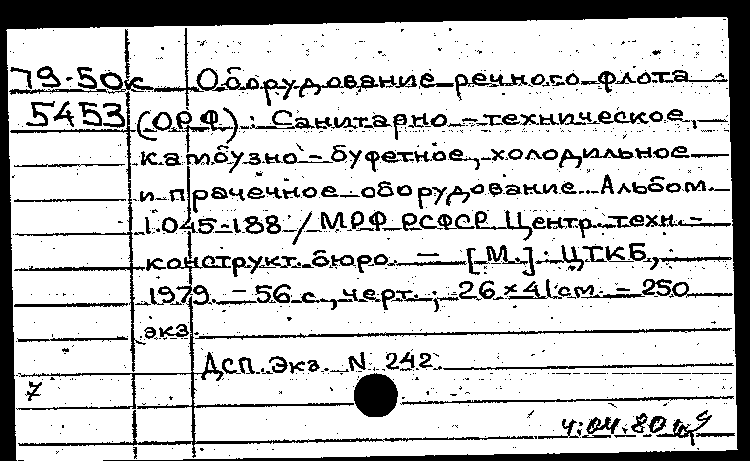 79-50с Оборудование речного флота
5453 (ОРФ): Санитарно-техническое,
камбузно-буфетное, холодильное
и прачечное оборудование. Альбом.
1.045-188 / МРФ РСФСР. Центр. техн.-
конструкт. бюро. — [М.]: ЦТКБ,
1979. - 56 с., черт.; 26×41 см. - 250
экз.
ДСП. Экз. N 242.
7
4.04.80